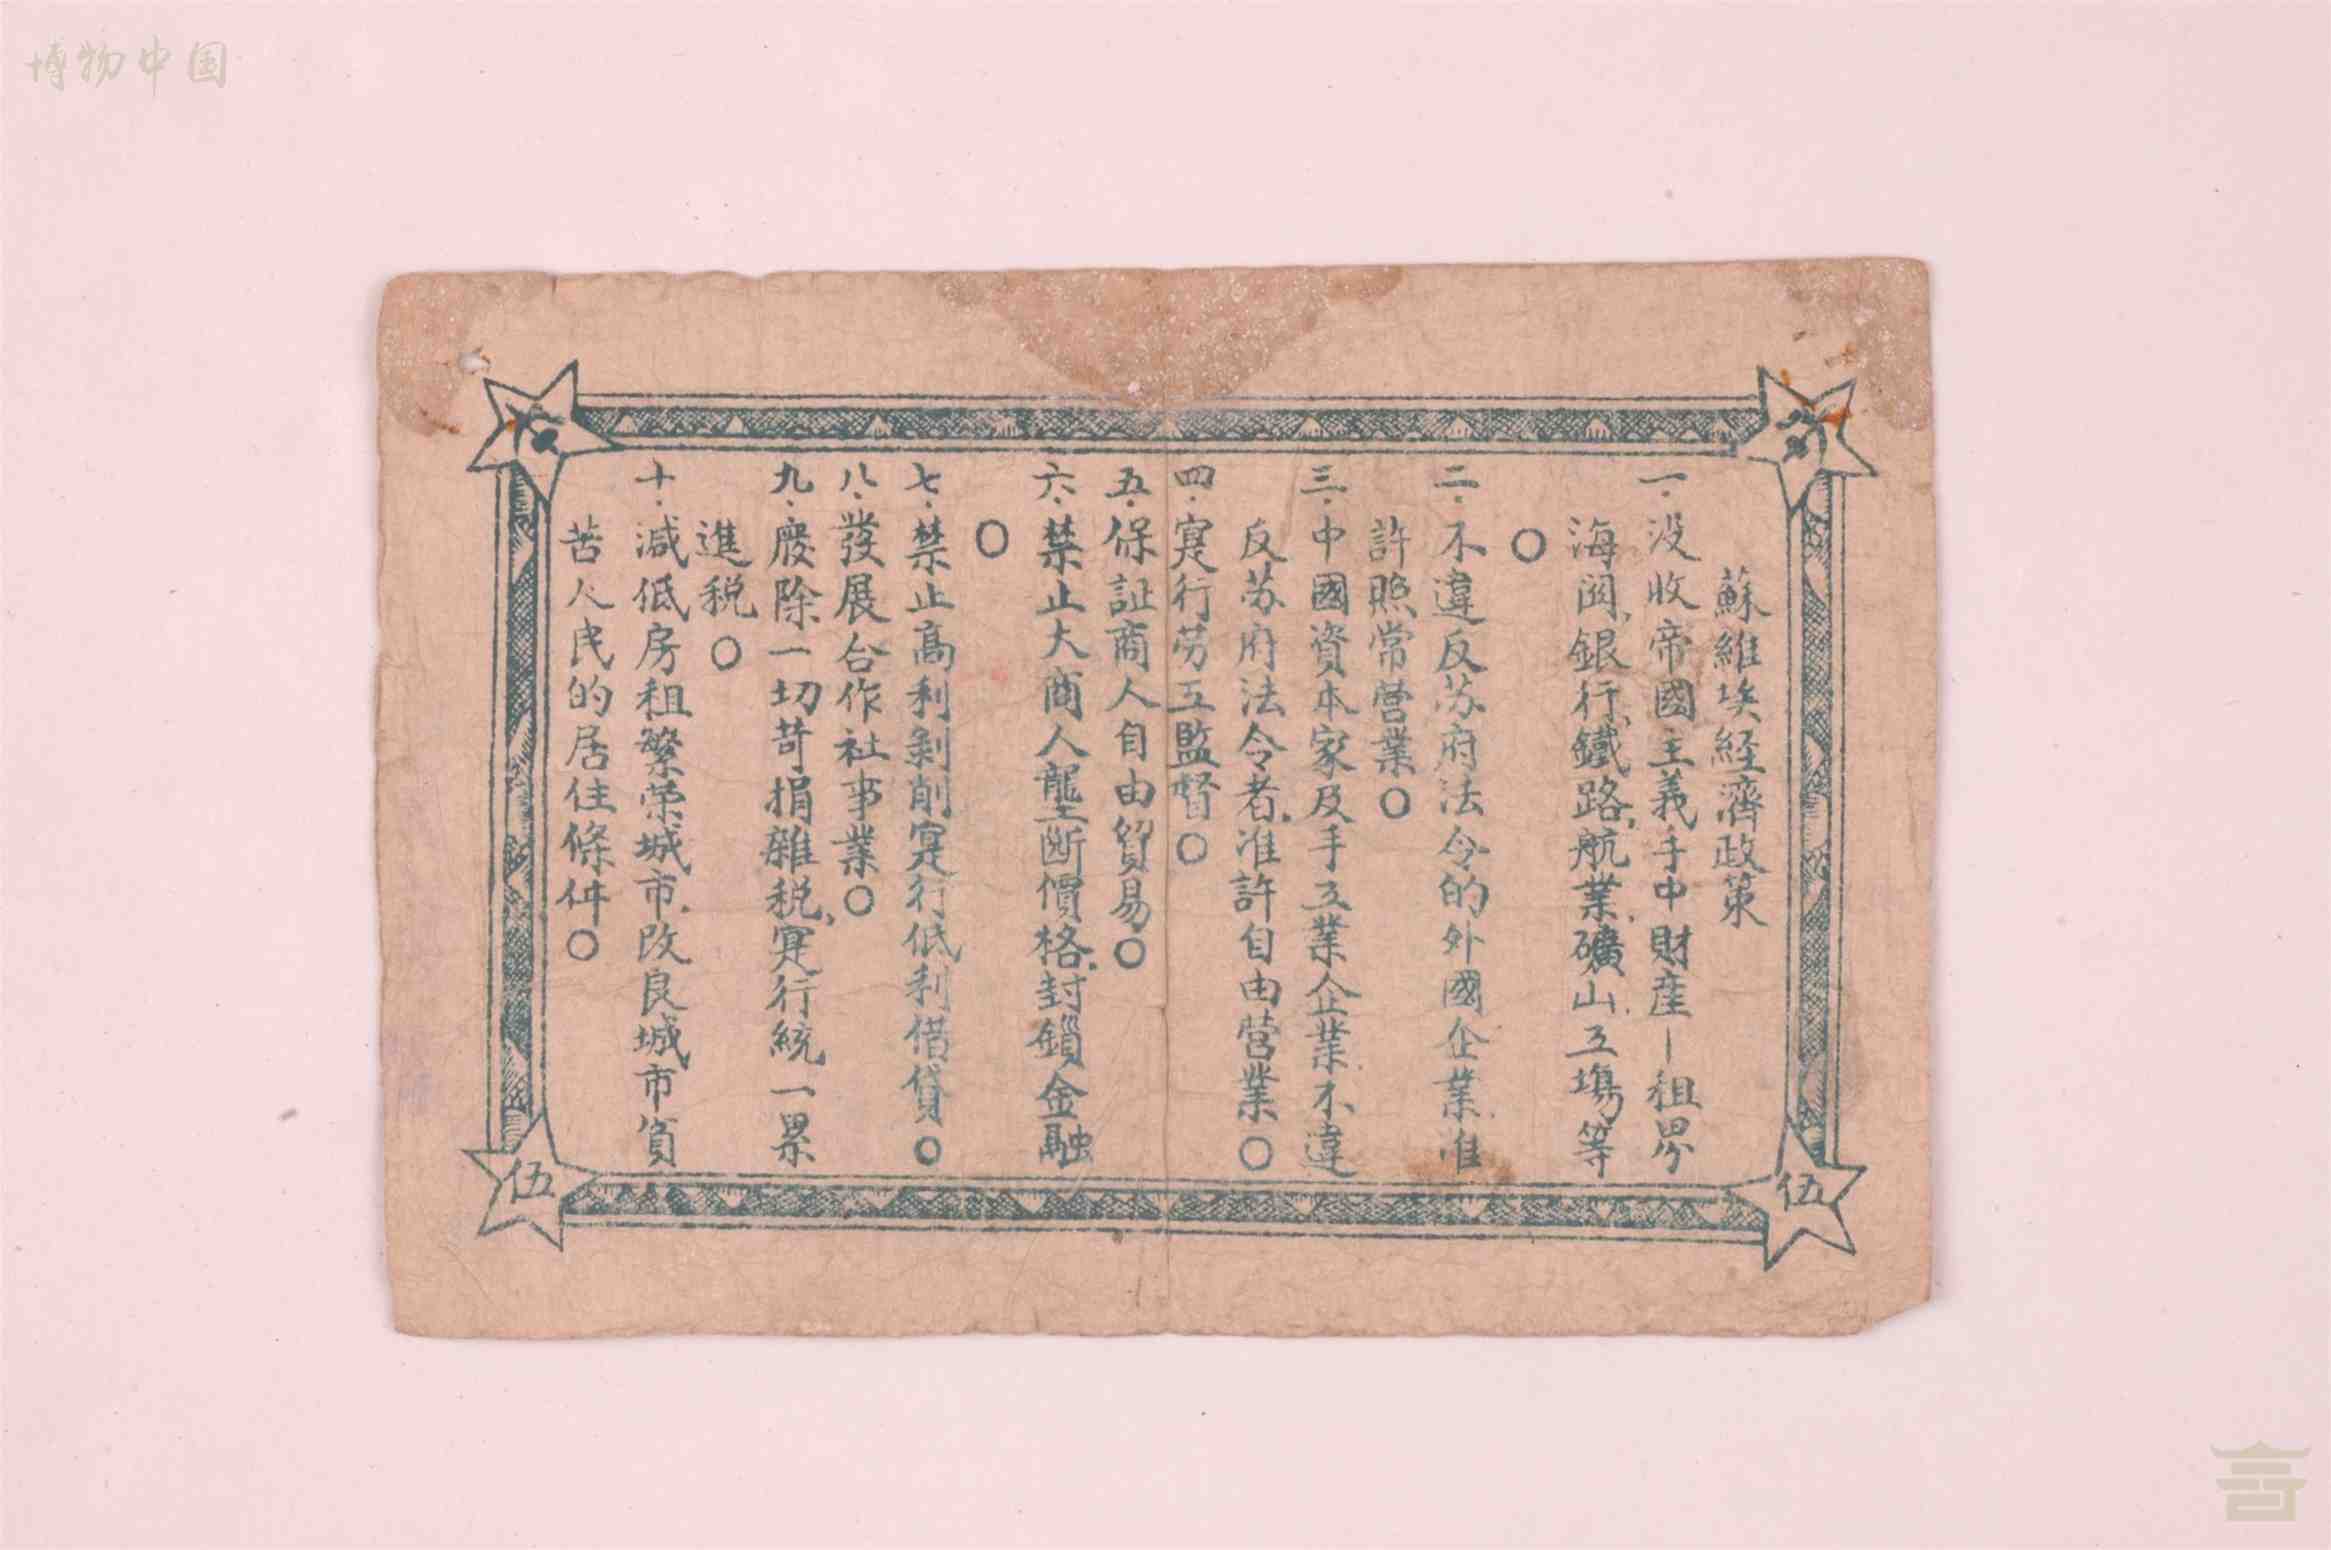 博物中国
蘇維埃経濟政策
一．没收帝國主義手中財産—租界
海関、銀行、鐵路、航業、礦山、工塲等
○
二．不違反苏府法令的外國企業．准
許照常营業○
三．中國資本家及手工業企業．不違
反苏府法令者．准許自由营業○
四．寔行劳工監督○
五．保証商人自由貿易○
六．禁止大商人壟断價格．封鎖金融
○
七．禁止高利剝削寔行低利借貸○
八．發展合作社事業○
九．廢除一切苛捐雜税、寔行統一累
進税○
十．减低房租繁荣城市．改良城市貧
苦人民的居住條件○
伍
伍